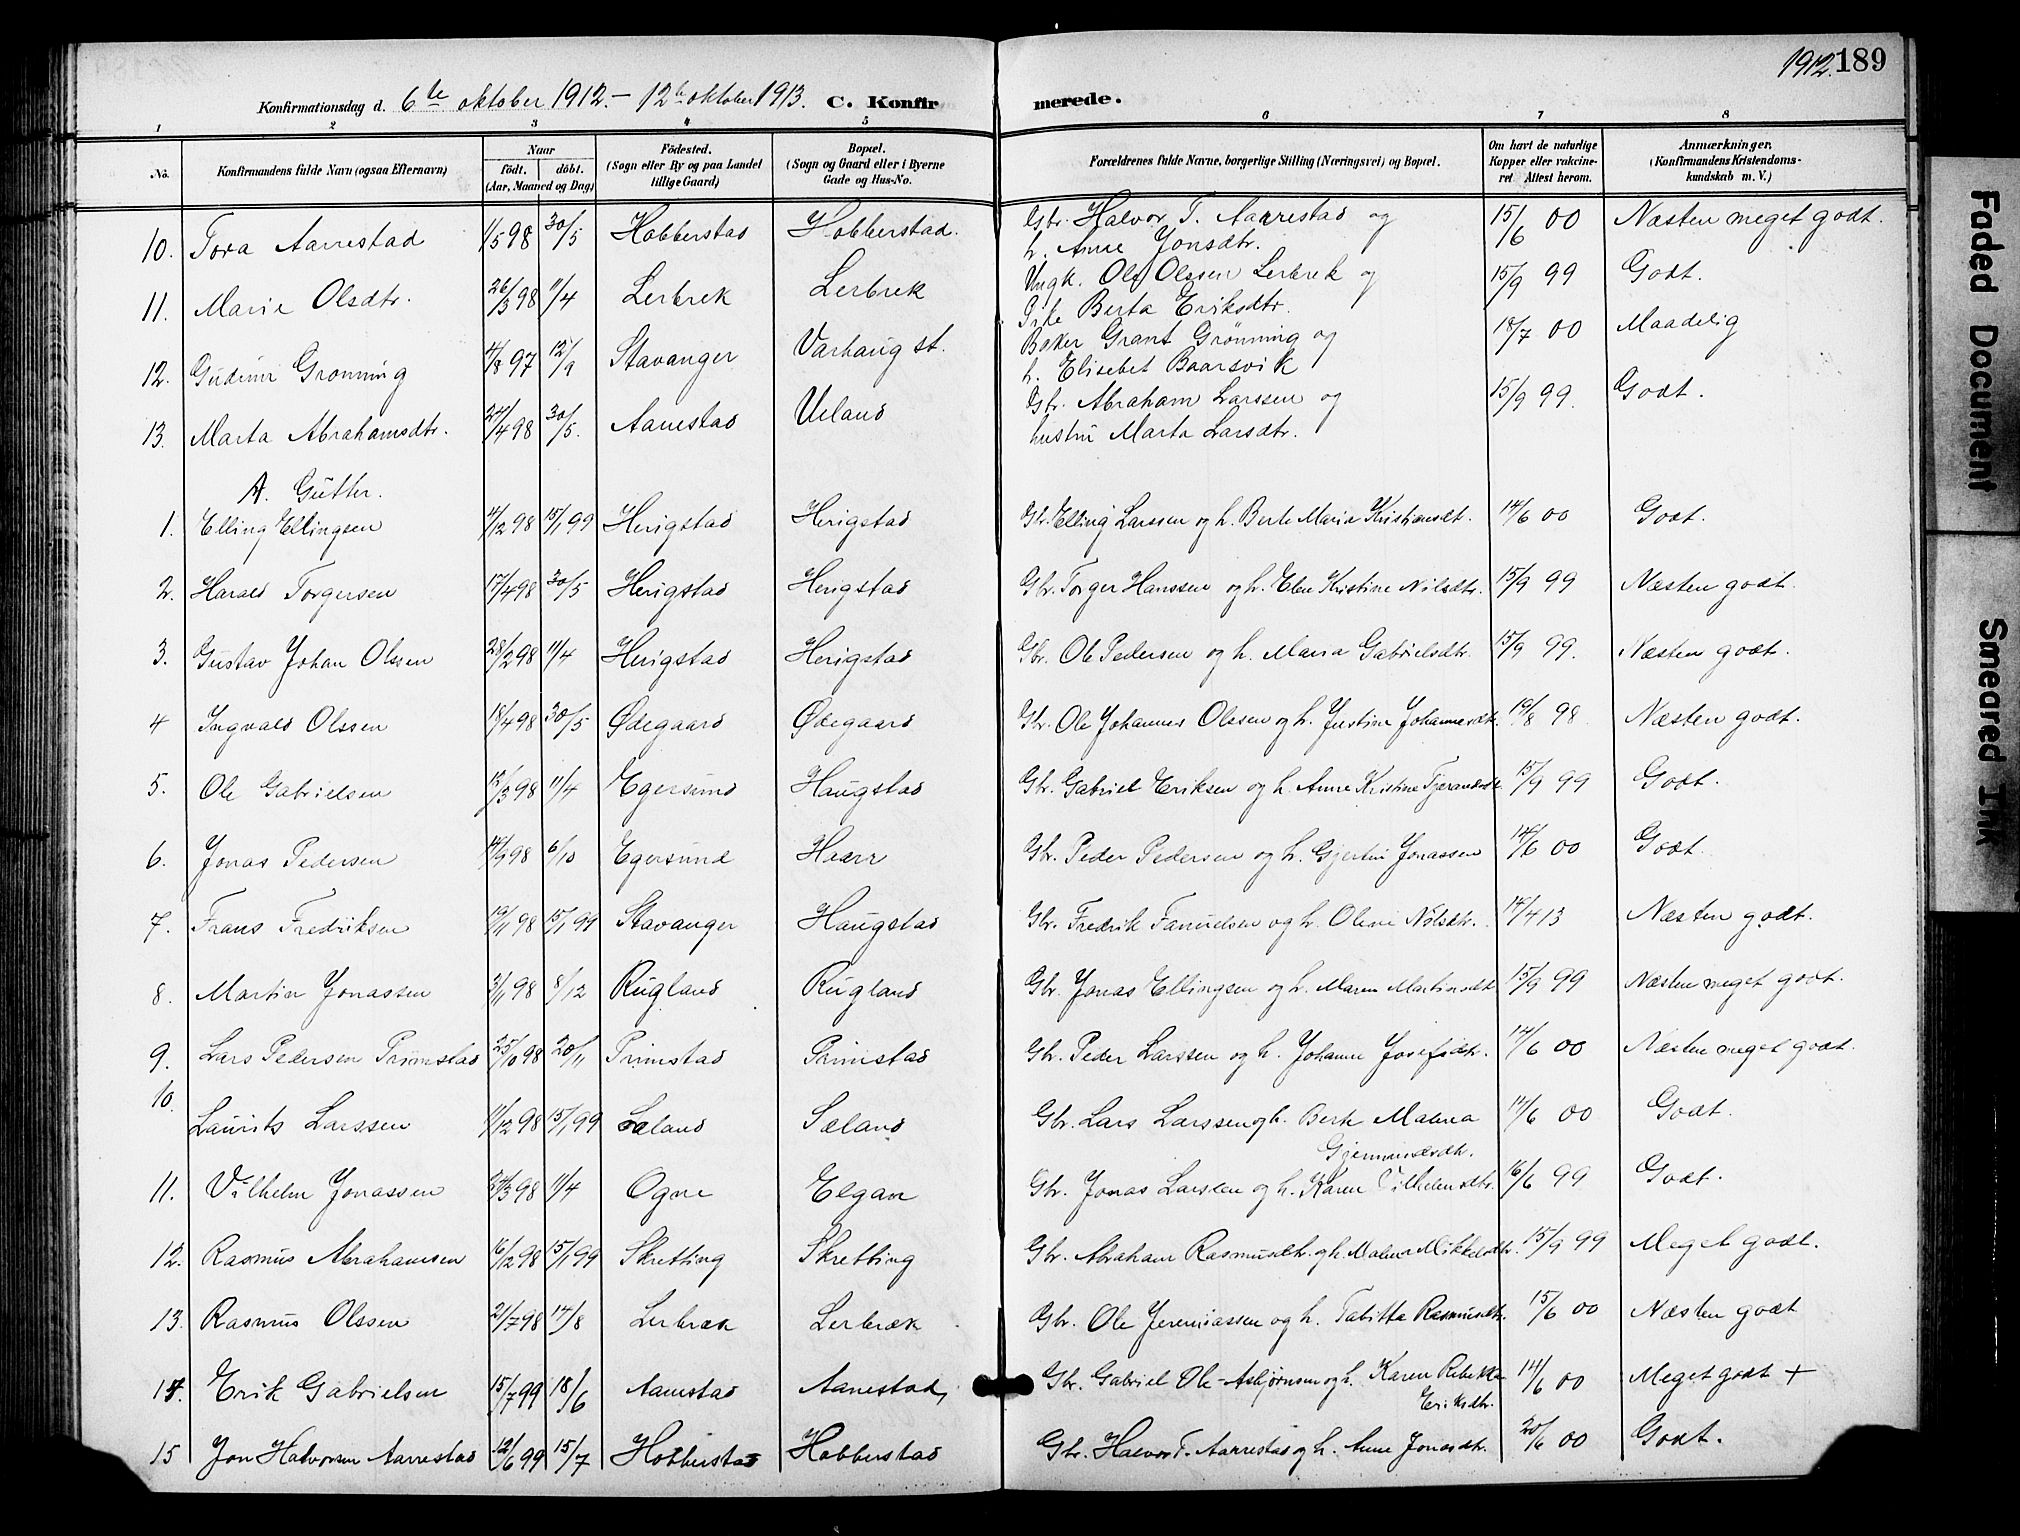 1912. 189
Konfirmationsdag d. 6te oktober 1912. - 12te oktober 1913. C. Konfirmerede.
1 2 3 4 5 6 7 8
No. Konfirmandens fulde Navn (ogsaa Efternavn) Naar födt. döbt. (Aar, Maaned og Dag) Födested. (Sogn eller By og paa Landet tillige Gaard) Bopæl. (Sogn og Gaard eller i Byerne Gade og Hus-No. Forældrenes fulde Navne, borgerlige Stilling (Næringsvei) og Bopæl. Om havt de naturlige Kopper eller vakcineret Attest herom. Anmærkninger, (Konfirmandens Kristendomskundskab m. V.)
10. Tora Aarrestad 1/5 98 30/5 Hobberstad Hobberstad. Gbr. Halvor T. Aarrestad og h. Anne Jonsdtr. 15/6 00 Næsten meget godt.
11. Marie Olsdtr. 26/3 98 11/4 Lerbrek Lerbrek Ungk. Ole Olssen Lerbrek og Pike Berta Eriksdtr. 15/9 99 Godt.
12. Gudrun Grønning 4/8 97 12/9 Stavanger Varhaug st. Baker Grant Grønning og h. Elisebet Baarsvik 18/7 00 Maadelig
13. Marta Abrahamsdtr. 24/4 98 30/5. Aarrestad Ueland Gbr. Abraham Larssen og hustru Marta Larsdtr. 15/9 99. Godt.
A. Gutter.
1. Elling Ellingsen 4/12 98 15/1 99 Herigstad Herigstad Gbr. Elling Larssen og h. Berte Maria Kristiansdt. 14/6 00 Godt.
2. Harald Torgersen 17/4 98 30/5 Herigstad Herigstad Gbr. Torger Hanssen og h. Elen Kristine Nilsdtr. 15/9 99 Næsten godt.
3. Gustav Johan Olssen 28/2 98 11/4 Herigstad Herigstad Gbr. Ole Pedersen og h. Maria Gabrielsdtr. 15/9 99. Næsten godt.
4 Ingvald Olssen 18/4 98 30/5 Ødegaard Ødegaard Gbr. Ole Johannes Olssen og h. Justine Johannesdt. 19/8 98 Næsten godt.
5. Ole Gabrielsen 13/3 98 11/4 Egersund Haugstad Gbr. Gabriel Eriksen og h. Anne Kristine Tjerandsdt. 15/9 99 Godt.
6. Jonas Pedersen 14/9 98 6/10 Egersund Haarr Gbr. Peder Pedersen og h. Gjertine Jonassen 14/6 00 Godt.
7. Frans Fredriksen 19/11 98 15/1 99 Stavanger Haugstad Gbr. Fredrik Fanuelsen og h. Oline Nilsdtr. 14/4 13 Næsten godt.
8. Martin Jonassen 3/11 98 8/12 Rugland Rugland Gbr. Jonas Ellingsen og h. Maren Martinsdt. 15/9 99 Næsten meget godt.
9. Lars Pedersen Primstad 25/10 98 20/11 Primstad Primstad Gbr. Peder Larssen og h. Johanne Josefsdtr. 14/6 00 Næsten meget godt.
10. Laurits Larssen 11/12 98 15/1 99 Sæland Sæland Gbr. Lars Larssen og h. Berte Malena Gjermundsdtr. 14/6 00 Godt.
11. Vilhelm Jonassen 24/3 98 11/4 Ogne Elgan Gbr. Jonas Larsen og h. Karen Vilhelmsdtr. 16/6 99 Godt.
12. Rasmus Abrahamsen 16/12 98 15/1 99 Skretting Skretting Gbr. Abraham Rasmussen og h. Malene Mikkelsdtr. 15/9 99 Meget godt.
13. Rasmus Olssen 21/7 98 14/8 Lerbræk Lerbræk Gbr. Ole Jeremiassen og h. Tabitta Rasmusdtr. 15/6 00 Næsten godt
14. Erik Gabrielsen 15/7 99 18/6 Aarrestad Aarrestad, Gbr. Gabriel Ole Asbjørnsen og h. Karen Rebekka Eriksdtr. 14/6 00 Meget godt +
15 Jon Halvorsen Aarrestad 12/6 99 15/7 Hobberstad Hobberstad Gbr. Halvor T. Aarrestad og h. Anne Jonasdtr. 20/6 00 Godt.
Faded Document
Smeared Ink